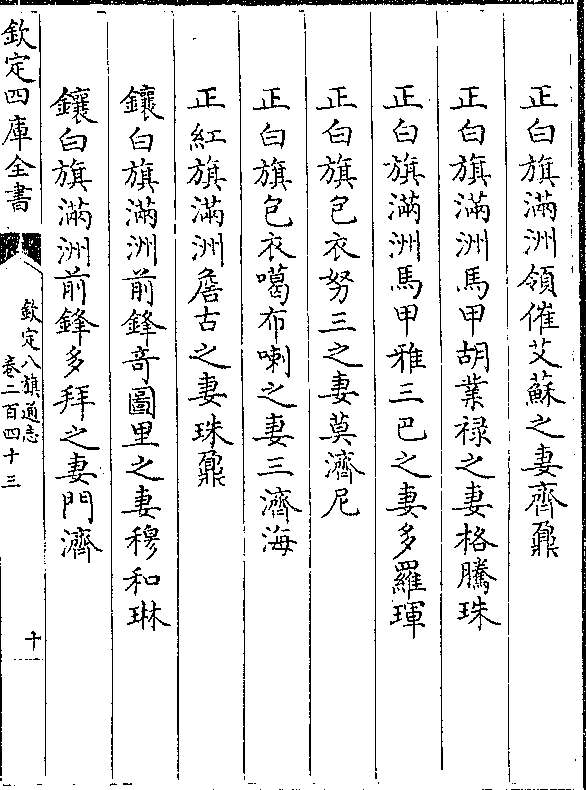 正白旗滿洲領催艾蘇之妻齊鼐
正白旗滿洲馬甲胡業禄之妻格騰珠
正白旗滿洲馬甲雅三巴之妻多羅琿
正白旗包衣努三之妻莫濟尼
正白旗包衣噶布喇之妻三濟海
正紅旗滿洲詹古之妻珠鼐
鑲白旗滿洲前鋒竒圖里之妻穆和琳
鑲白旗滿洲前鋒多拜之妻門濟
欽定四庫全書
欽定八旗通志
卷二百四十三
十